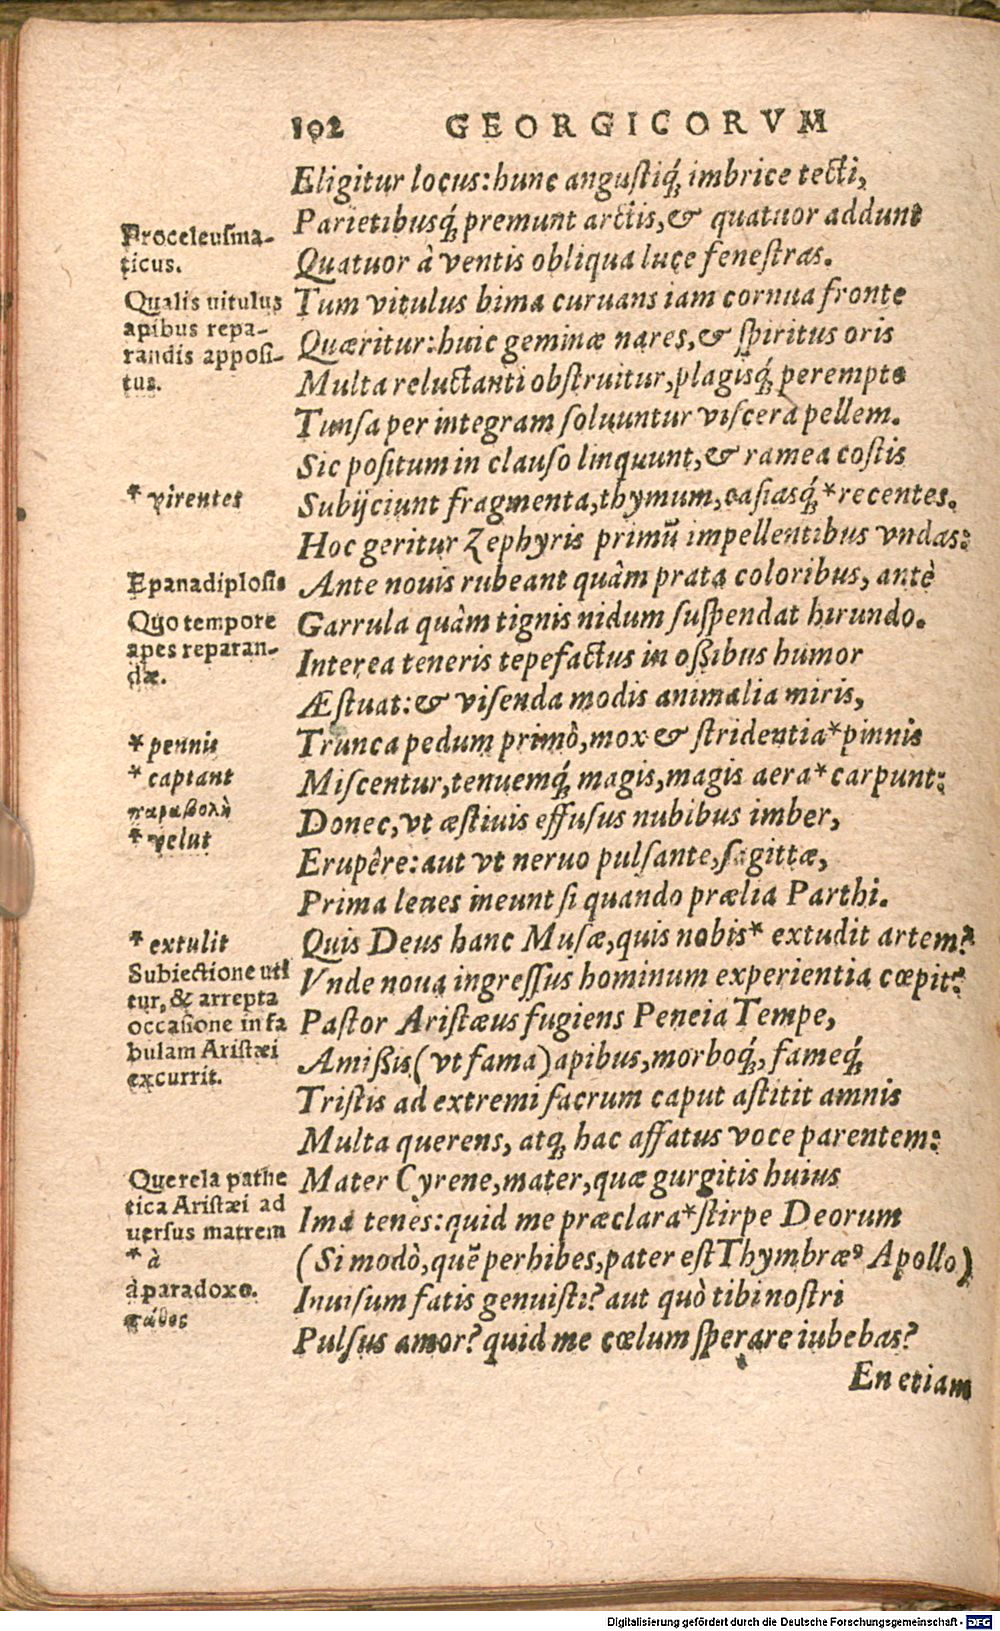 192 GEORGICORVM
Eligitur locus: hunc angustiq́; imbrice tecti,
Parietibusq́; premunt arctis, & quatuor addunt
Quatuor à ventis obliqua luce fenestras.
Tum vitulus bima curuans iam cornua fronte
Quæritur: huic geminæ nares, & spiritus oris
Multa reluctanti obstruitur, plagisq́; perempto
Tunsa per integram soluuntur viscera pellem.
Sic positum in clauso linquunt, & ramea costis
Subijciunt fragmenta, thymum, casiasq́; *recentes.
Hoc geritur Zephyris primũ impellentibus vndas:
Ante nouis rubeant quàm prata coloribus, antè
Garrula quàm tignis nidum suspendat hirundo.
Interea teneris tepefactus in oßibus humor
Æstuat: & visenda modis animalia miris,
Trunca pedum primò, mox & stridentia *pinnis
Miscentur, tenuemq́; magis, magis aera *carpunt:
Donec, vt æstiuis effusus nubibus imber,
Erupêre: aut vt neruo pulsante, sagittæ,
Prima leues ineunt si quando prælia Parthi.
Quis Deus hanc Musæ, quis nobis* extudit artem?
Vnde noua ingressus hominum experientia cœpit?
Pastor Aristæus fugiens Peneia Tempe,
Amißis (vt fama) apibus, morboq́;, fameq́;
Tristis ad extremi sacrum caput astitit amnis
Multa querens, atq; hac affatus voce parentem:
Mater Cyrene, mater, quæ gurgitis huius
Ima tenes: quid me præclara *stirpe Deorum
(Si modò, quẽ perhibes, pater est Thymbræꝰ Apollo)
Inuisum fatis genuisti? aut quò tibi nostri
Pulsus amor? quid me cœlum sperare iubebas?
En etiam
Proceleusma-
ticus.
Qualis uitulus
apibus repa-
randis apposi-
tus.
* virentes
Epanadiplosis
Quo tempore
apes reparan-
dæ.
* pennis
* captant
παραβολὴ
* velut
* extulit
Subiectione uti
tur, & arrepta
occasione in fa
bulam Aristæi
excurrit.
Querela pathe
tica Aristæi ad
uersus matrem
* à
à paradoxo.
πάθος
Digitalisierung gefördert durch die Deutsche Forschungsgemeinschaft - DFG